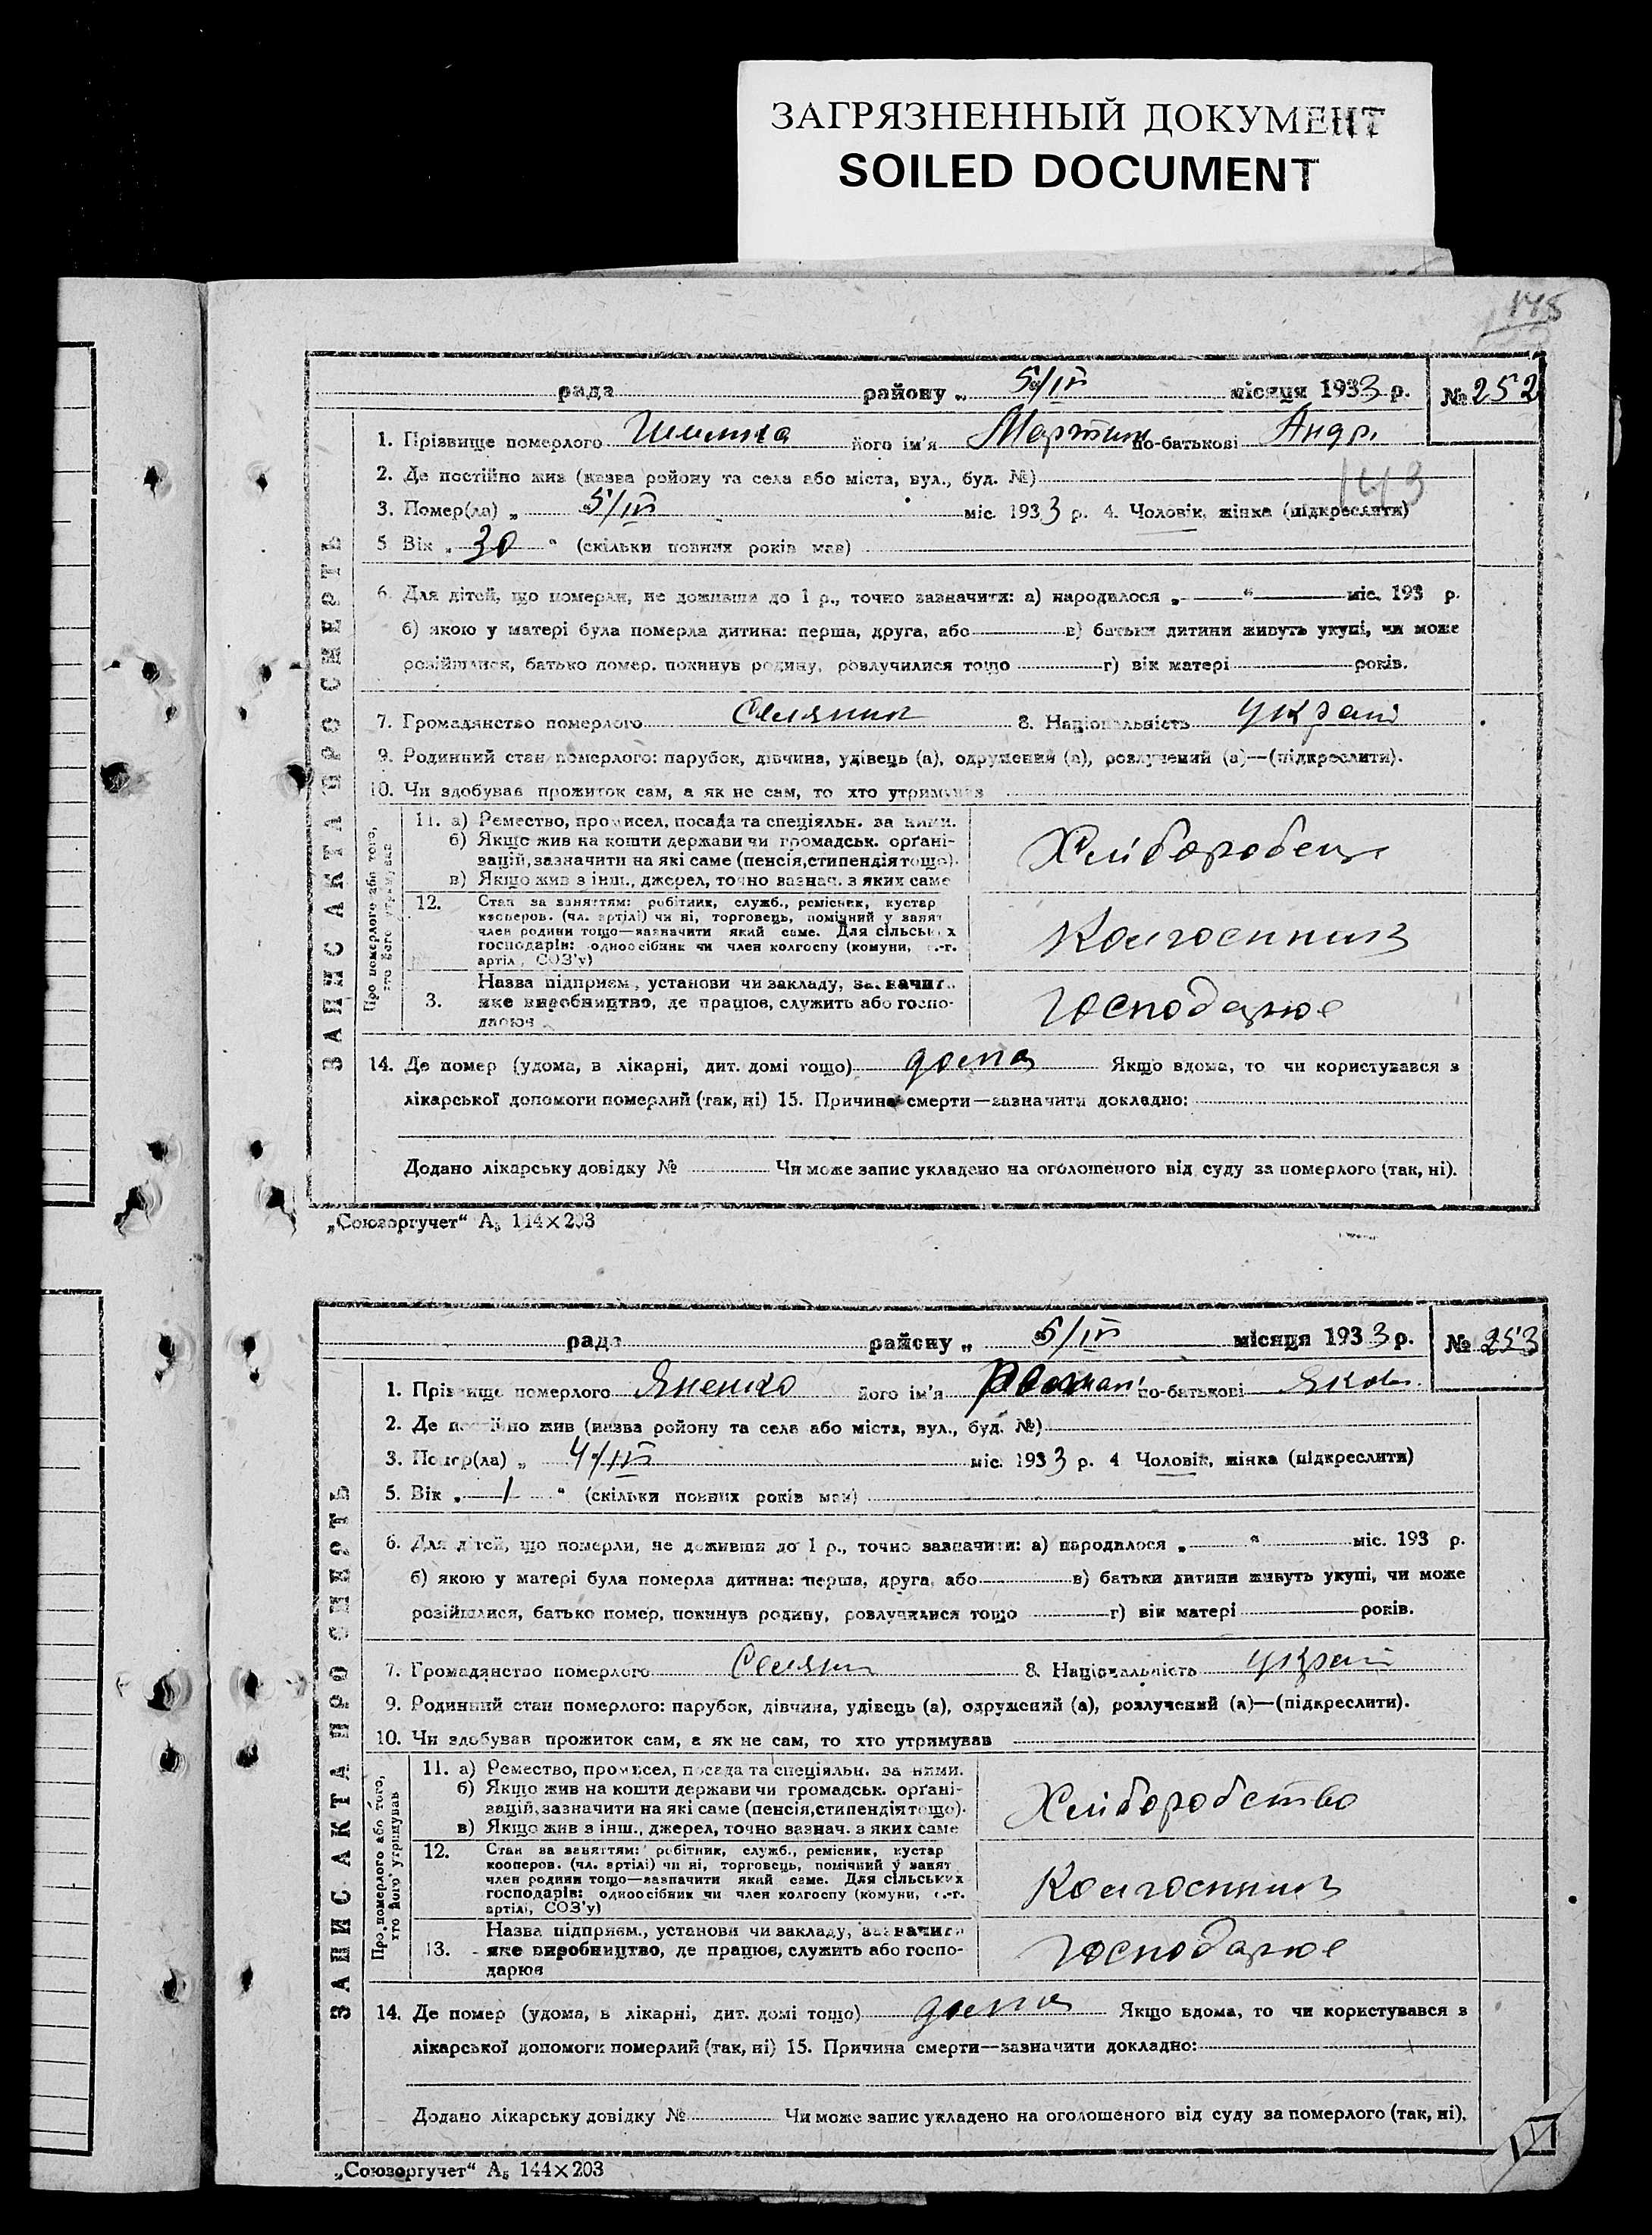 ЗАГРЯЗНЕННЫЙ ДОКУМЕНТ
SOILED DOCUMENT
рада району „ 5/IV місяця 1933 р. № 252
1. Прізвище померлого його ім'я Мартин по-батькові Андр.
2. Де постійно жив (назва району та села або міста, вул., буд. №)
143
3. Помер(ла) „ 5/IV міс. 1933 р. 4. Чоловік, жінка (підкреслити)
5 Вік „ 30 “ (скільки повних років мав)
6. Для дітей, що померли, не доживши до 1 р., точно зазначити: а) народилося „ “ міс. 193 р.
б) якою у матері була померла дитина: перша, друга, або в) батьки дитини живуть укупі, чи може
розійшлися, батько помер, покинув родину, розлучилися тощо г) вік матері років.
7. Громадянство померлого Селянин 8. Національність Украї
9. Родинний стан померлого: парубок, дівчина, удівець (а), одружений (а), розлучений (а)—(підкреслити).
10. Чи здобував прожиток сам, а як не сам, то хто утримував
ЗАПИС АКТА ПРО СМЕРТЬ
Про померлого або того,
хто його утримував
11. а) Ремество, промисел, посада та спеціяльн. за ними.
б) Якщо жив на кошти держави чи громадськ. орґані-
зацій, зазначити на які саме (пенсія, стипендія тощо).
в) Якщо жив з інш., джерел, точно зазнач. з яких саме
Хліборобець
12. Стан за заняттям: робітник, служб., ремісник, кустар
кооперов. (чл. артілі) чи ні, торговець, помічний у занят
член родини тощо—зазначити який саме. Для сільських
господарів: одноосібник чи член колгоспу (комуни, с.-г.
артіл , СОЗ'у)
Колгоспник
3. Назва підприєм., установи чи закладу, зазначити
яке виробництво, де працює, служить або госпо-
дарює
Господарює
14. Де помер (удома, в лікарні, дит. домі тощо) дома Якщо вдома, то чи користувався з
лікарської допомоги померлий (так, ні) 15. Причина смерти—зазначити докладно:
Додано лікарську довідку № Чи може запис укладено на оголошеного від суду за померлого (так, ні).
„Союзоргучет“ А₅ 144×203
рада району „ 5/IV місяця 1933 р. № 253
1. Прізвище померлого Яненко його ім'я по-батькові Яков.
2. Де постійно жив (назва району та села або міста, вул., буд. №)
3. Помер(ла) „ 4/IV міс. 1933 р. 4 Чоловік, жінка (підкреслити)
5. Вік „ 1 “ (скільки повних років мав)
6. Для дітей, що померли, не доживши до 1 р., точно зазначити: а) народилося „ “ міс. 193 р.
б) якою у матері була померла дитина: перша, друга, або в) батьки дитини живуть укупі, чи може
розійшлися, батько помер, покинув родину, розлучилися тощо г) вік матері років.
7. Громадянство померлого Селян 8. Національність Украї
9. Родинний стан померлого: парубок, дівчина, удівець (а), одружений (а), розлучений (а)—(підкреслити).
10. Чи здобував прожиток сам, а як не сам, то хто утримував
ЗАПИС АКТА ПРО СМЕРТЬ
Про померлого або того,
хто його утримував
11. а) Ремество, промисел, посада та спеціяльн. за ними.
б) Якщо жив на кошти держави чи громадськ. орґані-
зацій, зазначити на які саме (пенсія, стипендія тощо).
в) Якщо жив з інш., джерел, точно зазнач. з яких саме
Хліборобство
12. Стан за заняттям: робітник, служб., ремісник, кустар
кооперов. (чл. артілі) чи ні, торговець, помічний у занят
член родини тощо—зазначити який саме. Для сільських
господарів: одноосібник чи член колгоспу (комуни, с.-г.
артілі, СОЗ'у)
Колгоспник
13. Назва підприєм., установи чи закладу, зазначити
яке виробництво, де працює, служить або госпо-
дарює
Господарює
14. Де помер (удома, в лікарні, дит. домі тощо) дома Якщо вдома, то чи користувався з
лікарської допомоги померлий (так, ні) 15. Причина смерти—зазначити докладно:
Додано лікарську довідку № Чи може запис укладено на оголошеного від суду за померлого (так, ні).
„Союзоргучет“ А₅ 144×203